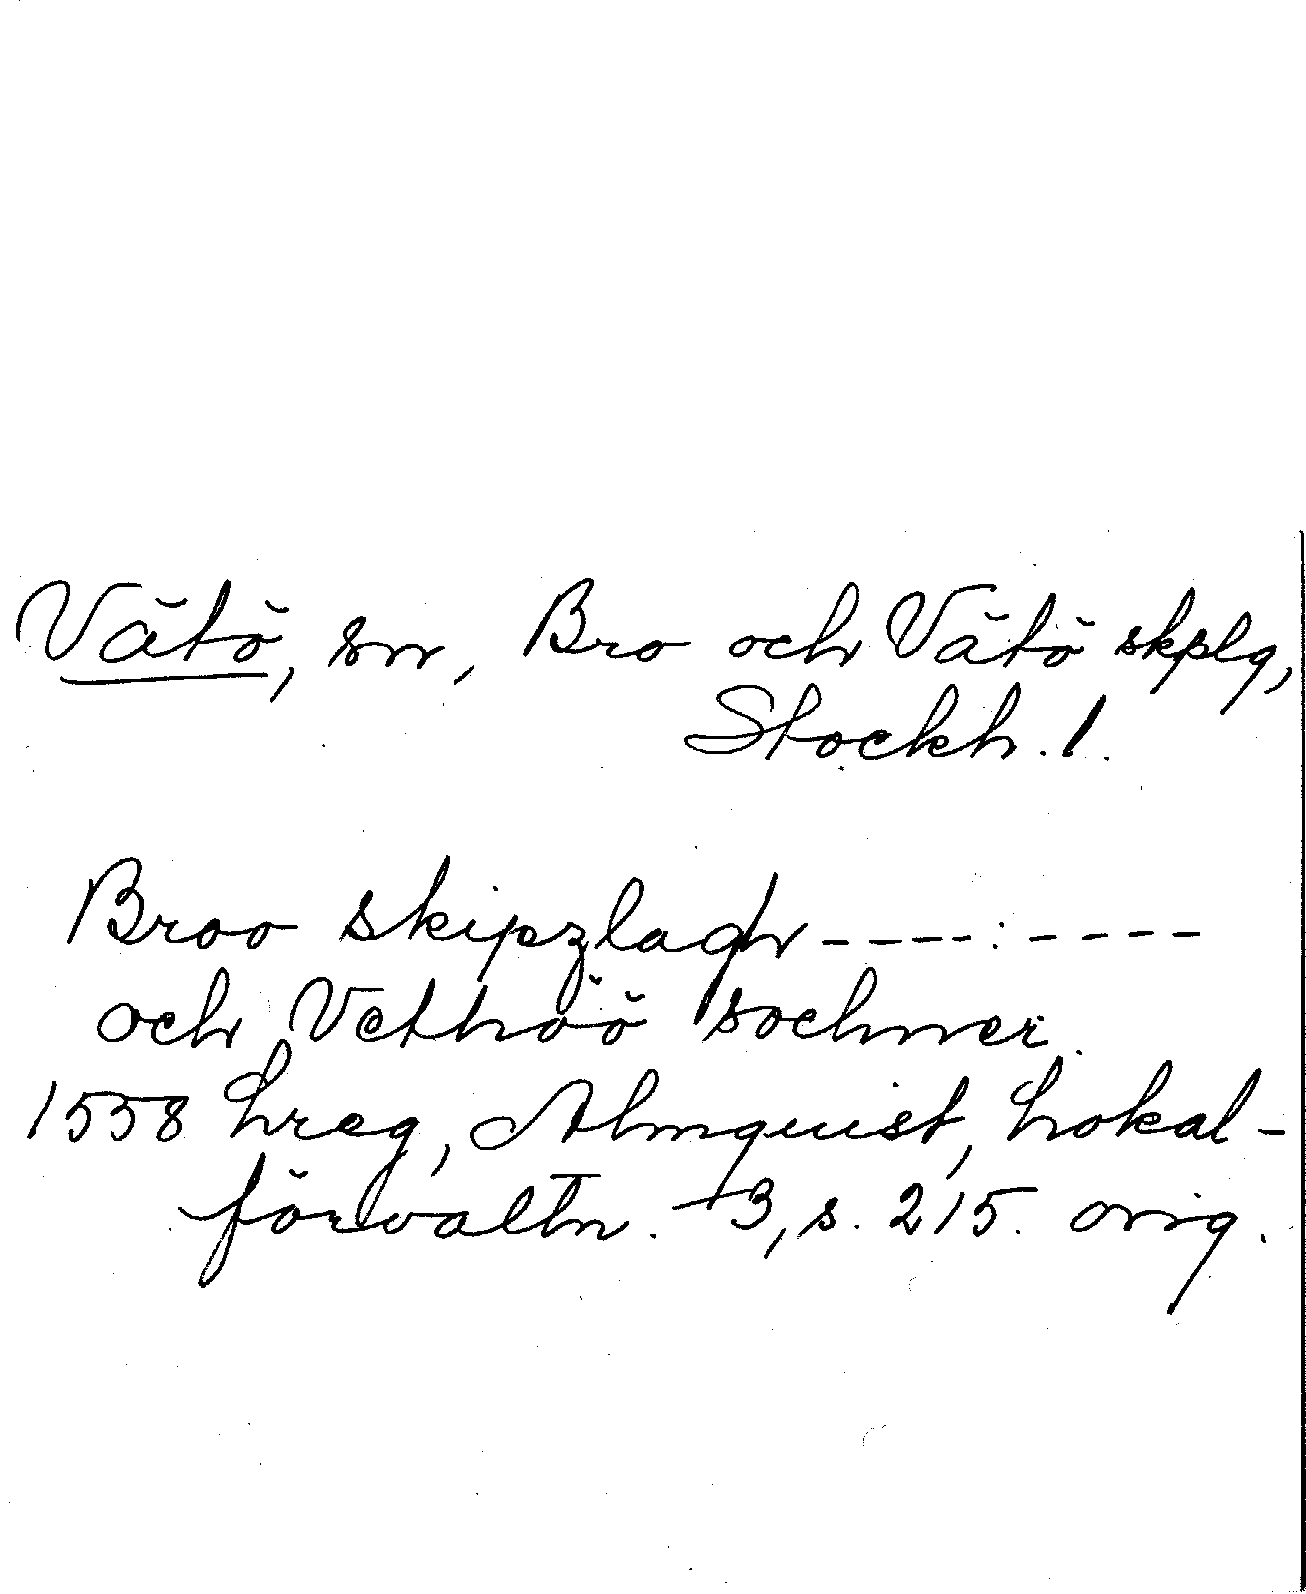 Vätö, sn, Bro och Vätö skplg,
Stockh. l.
Broo skipzlagh - - - - : - - - - -
och Vethöö sochner.
1558 Lreg, Almquist, Lokal-
förvaltn. 3, s. 215. orig.